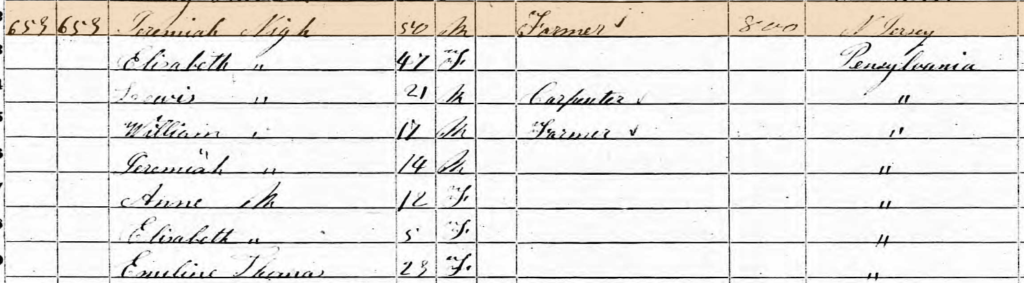 659 659 Jeremiah Nigh 50 M Farmer 800 N Jersey
Elisabeth " 47 F Pensylvania
Lewis " 21 M Carpenter "
William " 17 M Farmer "
Jeremiah " 14 M "
Anne M 12 F "
Elisabeth " 5 F "
Emiline Thomas 23 F "